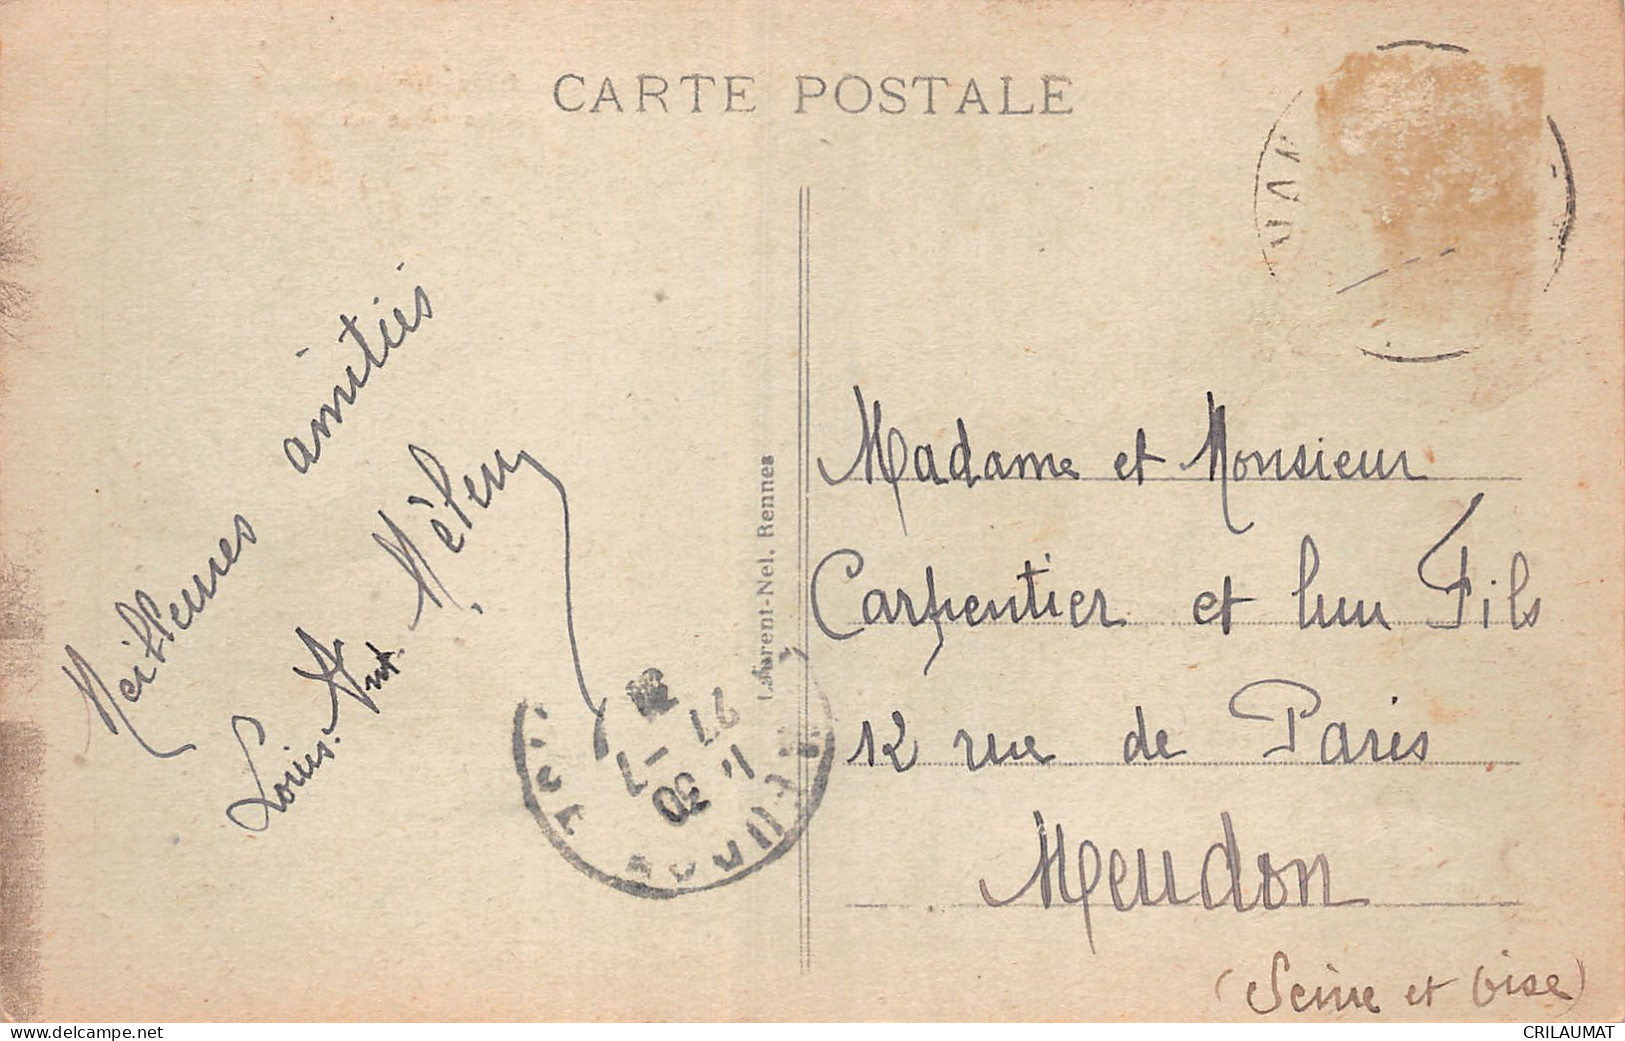 CARTE POSTALE
Meilleures amitiés
Louis.
Laurent-Nel. Rennes
Madame et Monsieur
Carpentier et leur Fils
12 rue de Paris
Meudon
(Seine et Oise)
1. 30
27 -7
www.delcampe.net
CRILAUMAT